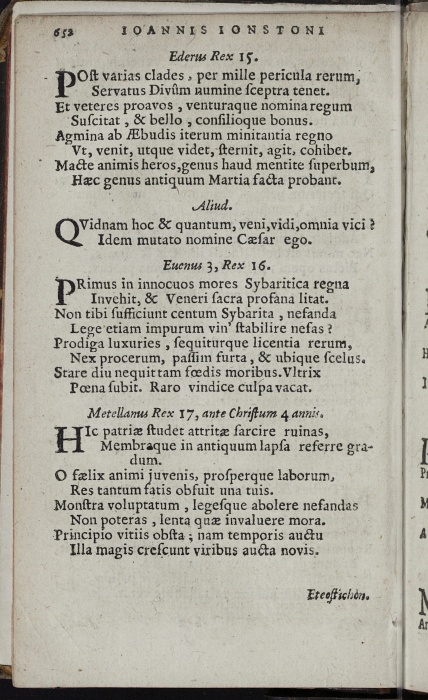 652 IOANNIS IONSTONI
Ederus Rex 15.
POst varias clades, per mille pericula rerum,
Servatus Divûm numine sceptra tenet.
Et veteres proavos, venturaque nomina regum
Suscitat, & bello, consilioque bonus.
Agmina ab Æbudis iterum minitantia regno
Vt, venit, utque videt, sternit, agit, cohibet.
Macte animis heros, genus haud mentite superbum,
Hæc genus antiquum Martia facta probant.
Aliud.
QVidnam hoc & quantum, veni, vidi, omnia vici?
Idem mutato nomine Cæsar ego.
Euenus 3, Rex 16.
PRimus in innocuos mores Sybaritica regna
Invehit, & Veneri sacra profana litat.
Non tibi sufficiunt centum Sybarita, nefanda
Lege etiam impurum vin' stabilire nefas?
Prodiga luxuries, sequiturque licentia rerum,
Nex procerum, passim furta, & ubique scelus.
Stare diu nequit tam fœdis moribus. Vltrix
Pœna subit. Raro vindice culpa vacat.
Metellanus Rex 17, ante Christum 4 annis.
HIc patriæ studet attritæ sarcire ruinas,
Membraque in antiquum lapsa referre gra-
dum.
O fælix animi juvenis, prosperque laborum,
Res tantum fatis obfuit una tuis.
Monstra voluptatum, legesque abolere nefandas
Non poteras, lenta quæ invaluere mora.
Principio vitiis obsta; nam temporis auctu
Illa magis crescunt viribus aucta novis.
Eteostichon.